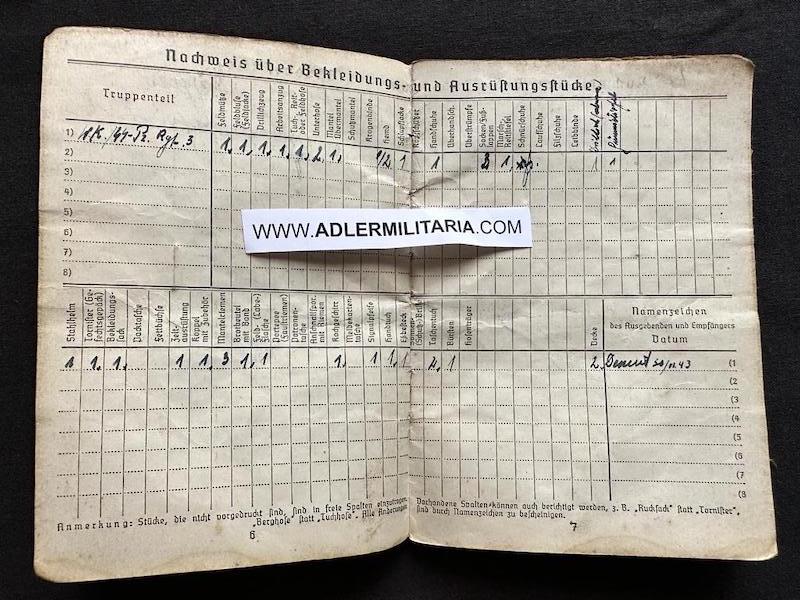 Nachweis über Bekleidungs- und Ausrüstungsstücke
Truppenteil
Feldmütze
Feldbluse (Feldjacke)
Drillichzeug
Arbeitsanzug
Tuch-, Reit- oder Feldhose
Unterhose
Mantel Übermantel
Schutzmantel
Kragenbinde
Hemd
Schlupfjacke
Kopfschützer
Handschuhe
Überhandsch.
Überstrümpfe
Socken-Fußlappen
Marsch-, Reitstiefel
Schnürschuhe
Laufschuhe
Filzschuhe
Leibbinde
1) Pz. Rgt. 3 1. 1. 1. 1. 1. 2. 1. 1/2. 1 1 1. 1 1
2)
3)
4)
5)
6)
7)
8)
WWW.ADLERMILITARIA.COM
Stahlhelm
Tornister (Gefechtsgepäck)
Bekleidungssack
Packtasche
Fettbüchse
Zeltausrüstung
Koppel mit Zubehör
Mantelriemen
Brotbeutel mit Band
Feld- (Labe-) Flasche
Portepee (Faustriemen)
Patronentasche
Anschnallspor. mit Riemen
Kochgeschirr
Meldekartentasche
Signalpfeife
Handtuch
Eßbesteck
Taschentuch
Bürsten
Hosenträger
Decke
Namenzeichen
des Ausgebenden und Empfängers
Datum
1. 1. 1 1. 3 1. 1 1. 1 1. 1 1 2. 43 (1
(2
(3
(4
(5
(6
(7
(8
Anmerkung: Stücke, die nicht vorgedruckt sind, sind in freie Spalten einzutragen.
„Berghose" statt „Tuchhose". Alle Änderungen
6
Vorhandene Spalten können auch berichtigt werden, z. B. „Rucksack" statt „Tornister",
sind durch Namenzeichen zu bescheinigen.
7